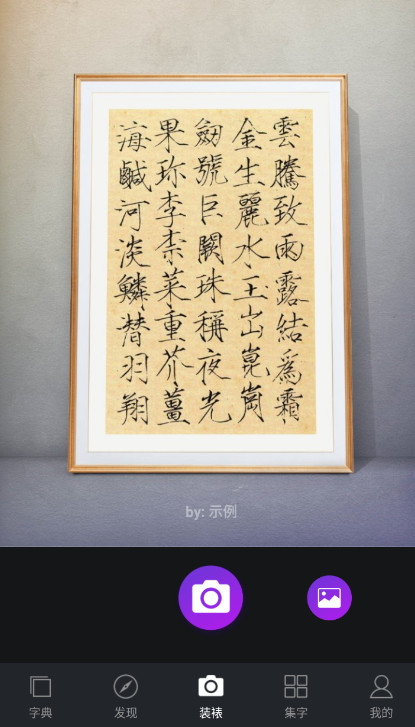 雲騰致雨露結爲霜
金生麗水玉出崑崗
劒號巨闕珠稱夜光
果珎李柰菜重芥薑
海鹹河淡鱗潛羽翔
by: 示例
字典 发现 装裱 集字 我的